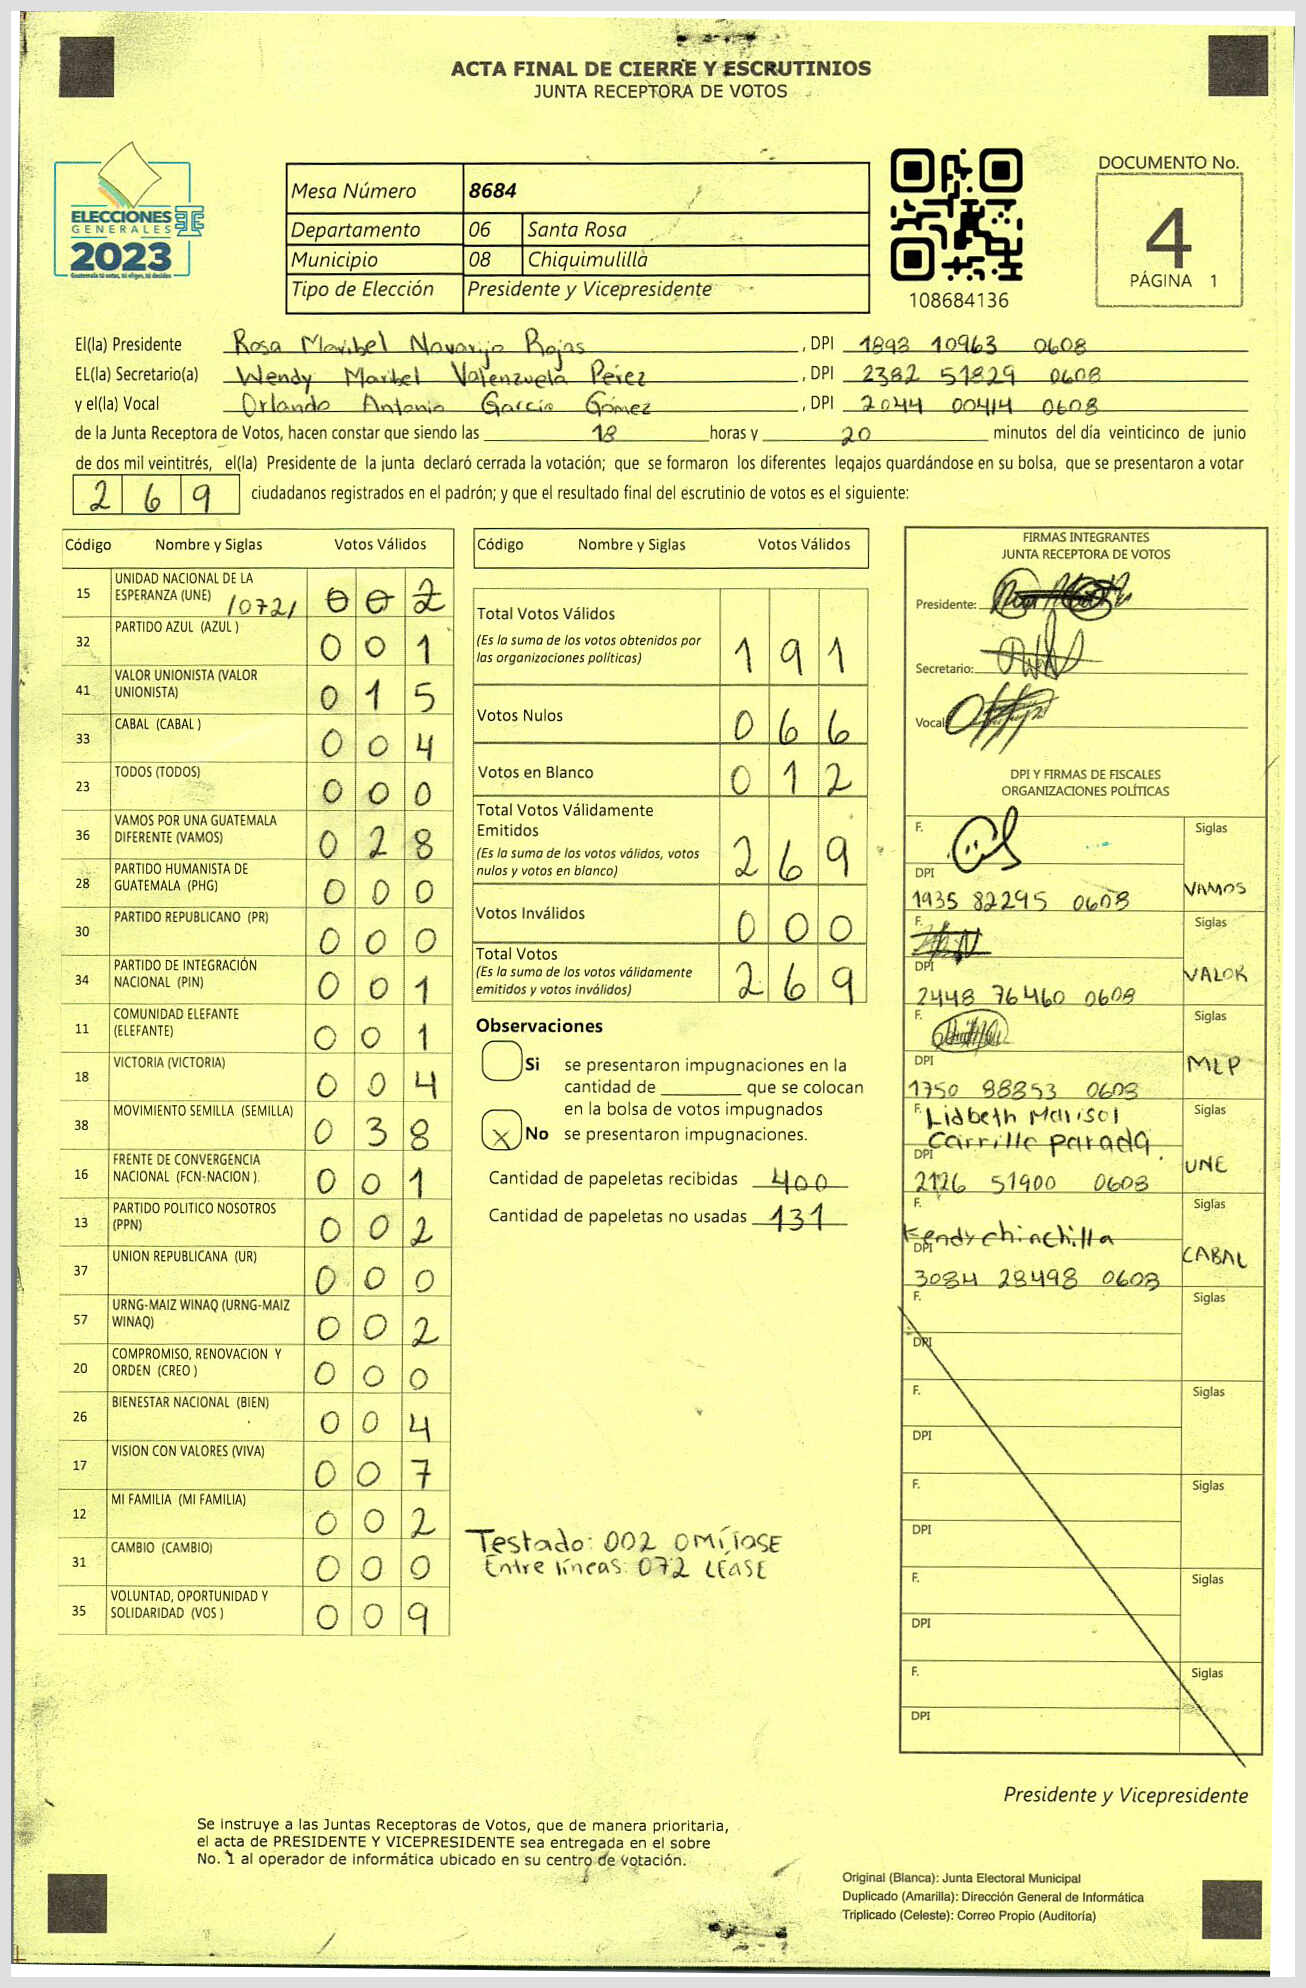 ACTA FINAL DE CIERRE Y ESCRUTINIOS
JUNTA RECEPTORA DE VOTOS
ELECCIONES
GENERALES
2023
Guatemala tú votas, tú eliges, tú decides
Mesa Número 8684
Departamento 06 Santa Rosa
Municipio 08 Chiquimulilla
Tipo de Elección Presidente y Vicepresidente
108684136
DOCUMENTO No.
4
PÁGINA 1
El(la) Presidente Rosa Maribel Navarijo Rojas, DPI 1893 10963 0608
EL(la) Secretario(a) Wendy Maribel Valenzuela Pérez, DPI 2382 51829 0608
y el(la) Vocal Orlando Antonio García Gómez, DPI 2044 00414 0608
de la Junta Receptora de Votos, hacen constar que siendo las 18 horas y 20 minutos del día veinticinco de junio
de dos mil veintitrés, el(la) Presidente de la junta declaró cerrada la votación; que se formaron los diferentes legajos quardándose en su bolsa, que se presentaron a votar
269 ciudadanos registrados en el padrón; y que el resultado final del escrutinio de votos es el siguiente:
Código Nombre y Siglas Votos Válidos
15 UNIDAD NACIONAL DE LA ESPERANZA (UNE) /072/ 002
32 PARTIDO AZUL (AZUL ) 001
41 VALOR UNIONISTA (VALOR UNIONISTA) 015
33 CABAL (CABAL ) 004
23 TODOS (TODOS) 000
36 VAMOS POR UNA GUATEMALA DIFERENTE (VAMOS) 028
28 PARTIDO HUMANISTA DE GUATEMALA (PHG) 000
30 PARTIDO REPUBLICANO (PR) 000
34 PARTIDO DE INTEGRACIÓN NACIONAL (PIN) 001
11 COMUNIDAD ELEFANTE (ELEFANTE) 001
18 VICTORIA (VICTORIA) 004
38 MOVIMIENTO SEMILLA (SEMILLA) 038
16 FRENTE DE CONVERGENCIA NACIONAL (FCN-NACION ) 001
13 PARTIDO POLITICO NOSOTROS (PPN) 002
37 UNION REPUBLICANA (UR) 000
57 URNG-MAIZ WINAQ (URNG-MAIZ WINAQ) 002
20 COMPROMISO, RENOVACION Y ORDEN (CREO ) 000
26 BIENESTAR NACIONAL (BIEN) 004
17 VISION CON VALORES (VIVA) 007
12 MI FAMILIA (MI FAMILIA) 002
31 CAMBIO (CAMBIO) 000
35 VOLUNTAD, OPORTUNIDAD Y SOLIDARIDAD (VOS ) 009
Código Nombre y Siglas Votos Válidos
Total Votos Válidos 191
(Es la suma de los votos obtenidos por
las organizaciones politicas)
Votos Nulos 066
Votos en Blanco 012
Total Votos Válidamente
Emitidos 269
(Es la suma de los votos válidos, votos
nulos y votos en blanco)
Votos Inválidos 000
Total Votos 269
(Es la suma de los votos válidamente
emitidos y votos inválidos)
Observaciones
Si se presentaron impugnaciones en la
cantidad de ________ que se colocan
en la bolsa de votos impugnados
X No se presentaron impugnaciones.
Cantidad de papeletas recibidas 400
Cantidad de papeletas no usadas 131
Testado: 002 OMÍTASE
Entre líneas: 072 LÉASE
FIRMAS INTEGRANTES
JUNTA RECEPTORA DE VOTOS
Presidente:
Secretario:
Vocal
DPI Y FIRMAS DE FISCALES
ORGANIZACIONES POLÍTICAS
F. Siglas
DPI VAMOS
1935 82295 0608
F. Siglas
DPI VALOR
2448 76460 0608
F. Siglas
DPI MLP
1750 88853 0608
F. Lisbeth Marisol Siglas
DPI Carrillo Parada. UNE
2126 51900 0608
F. Siglas
Kendy chinchilla
DPI CABAL
3084 28498 0608
F. Siglas
DPI
F. Siglas
DPI
F. Siglas
DPI
F. Siglas
DPI
F. Siglas
DPI
Presidente y Vicepresidente
Se instruye a las Juntas Receptoras de Votos, que de manera prioritaria,
el acta de PRESIDENTE Y VICEPRESIDENTE sea entregada en el sobre
No. 1 al operador de informática ubicado en su centro de votación.
Original (Blanca): Junta Electoral Municipal
Duplicado (Amarilla): Dirección General de Informática
Triplicado (Celeste): Correo Propio (Auditoría)